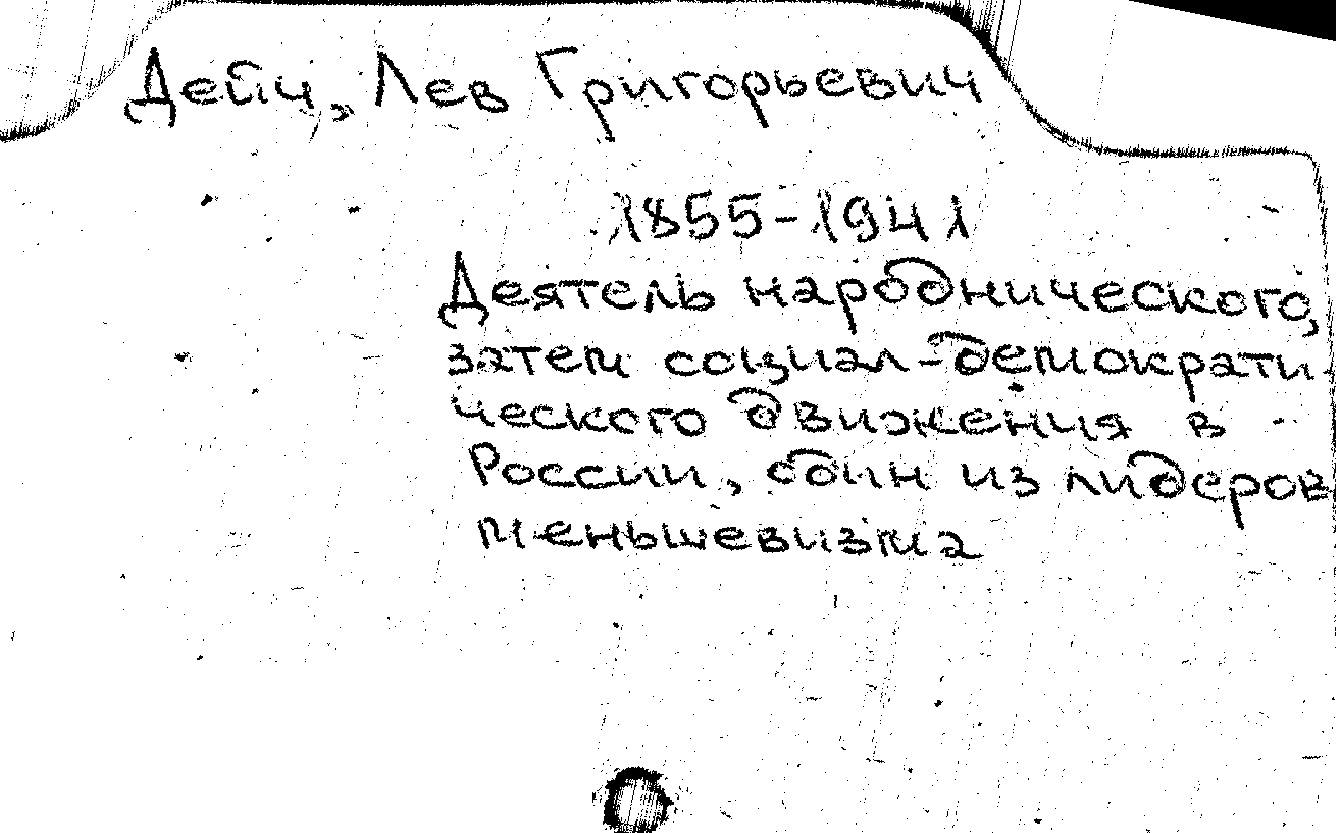 Дейч, Лев Григорьевич
1855-1941
Деятель народнического,
затем социал-демократи-
ческого движения в
России, один из лидеров
меньшевизма